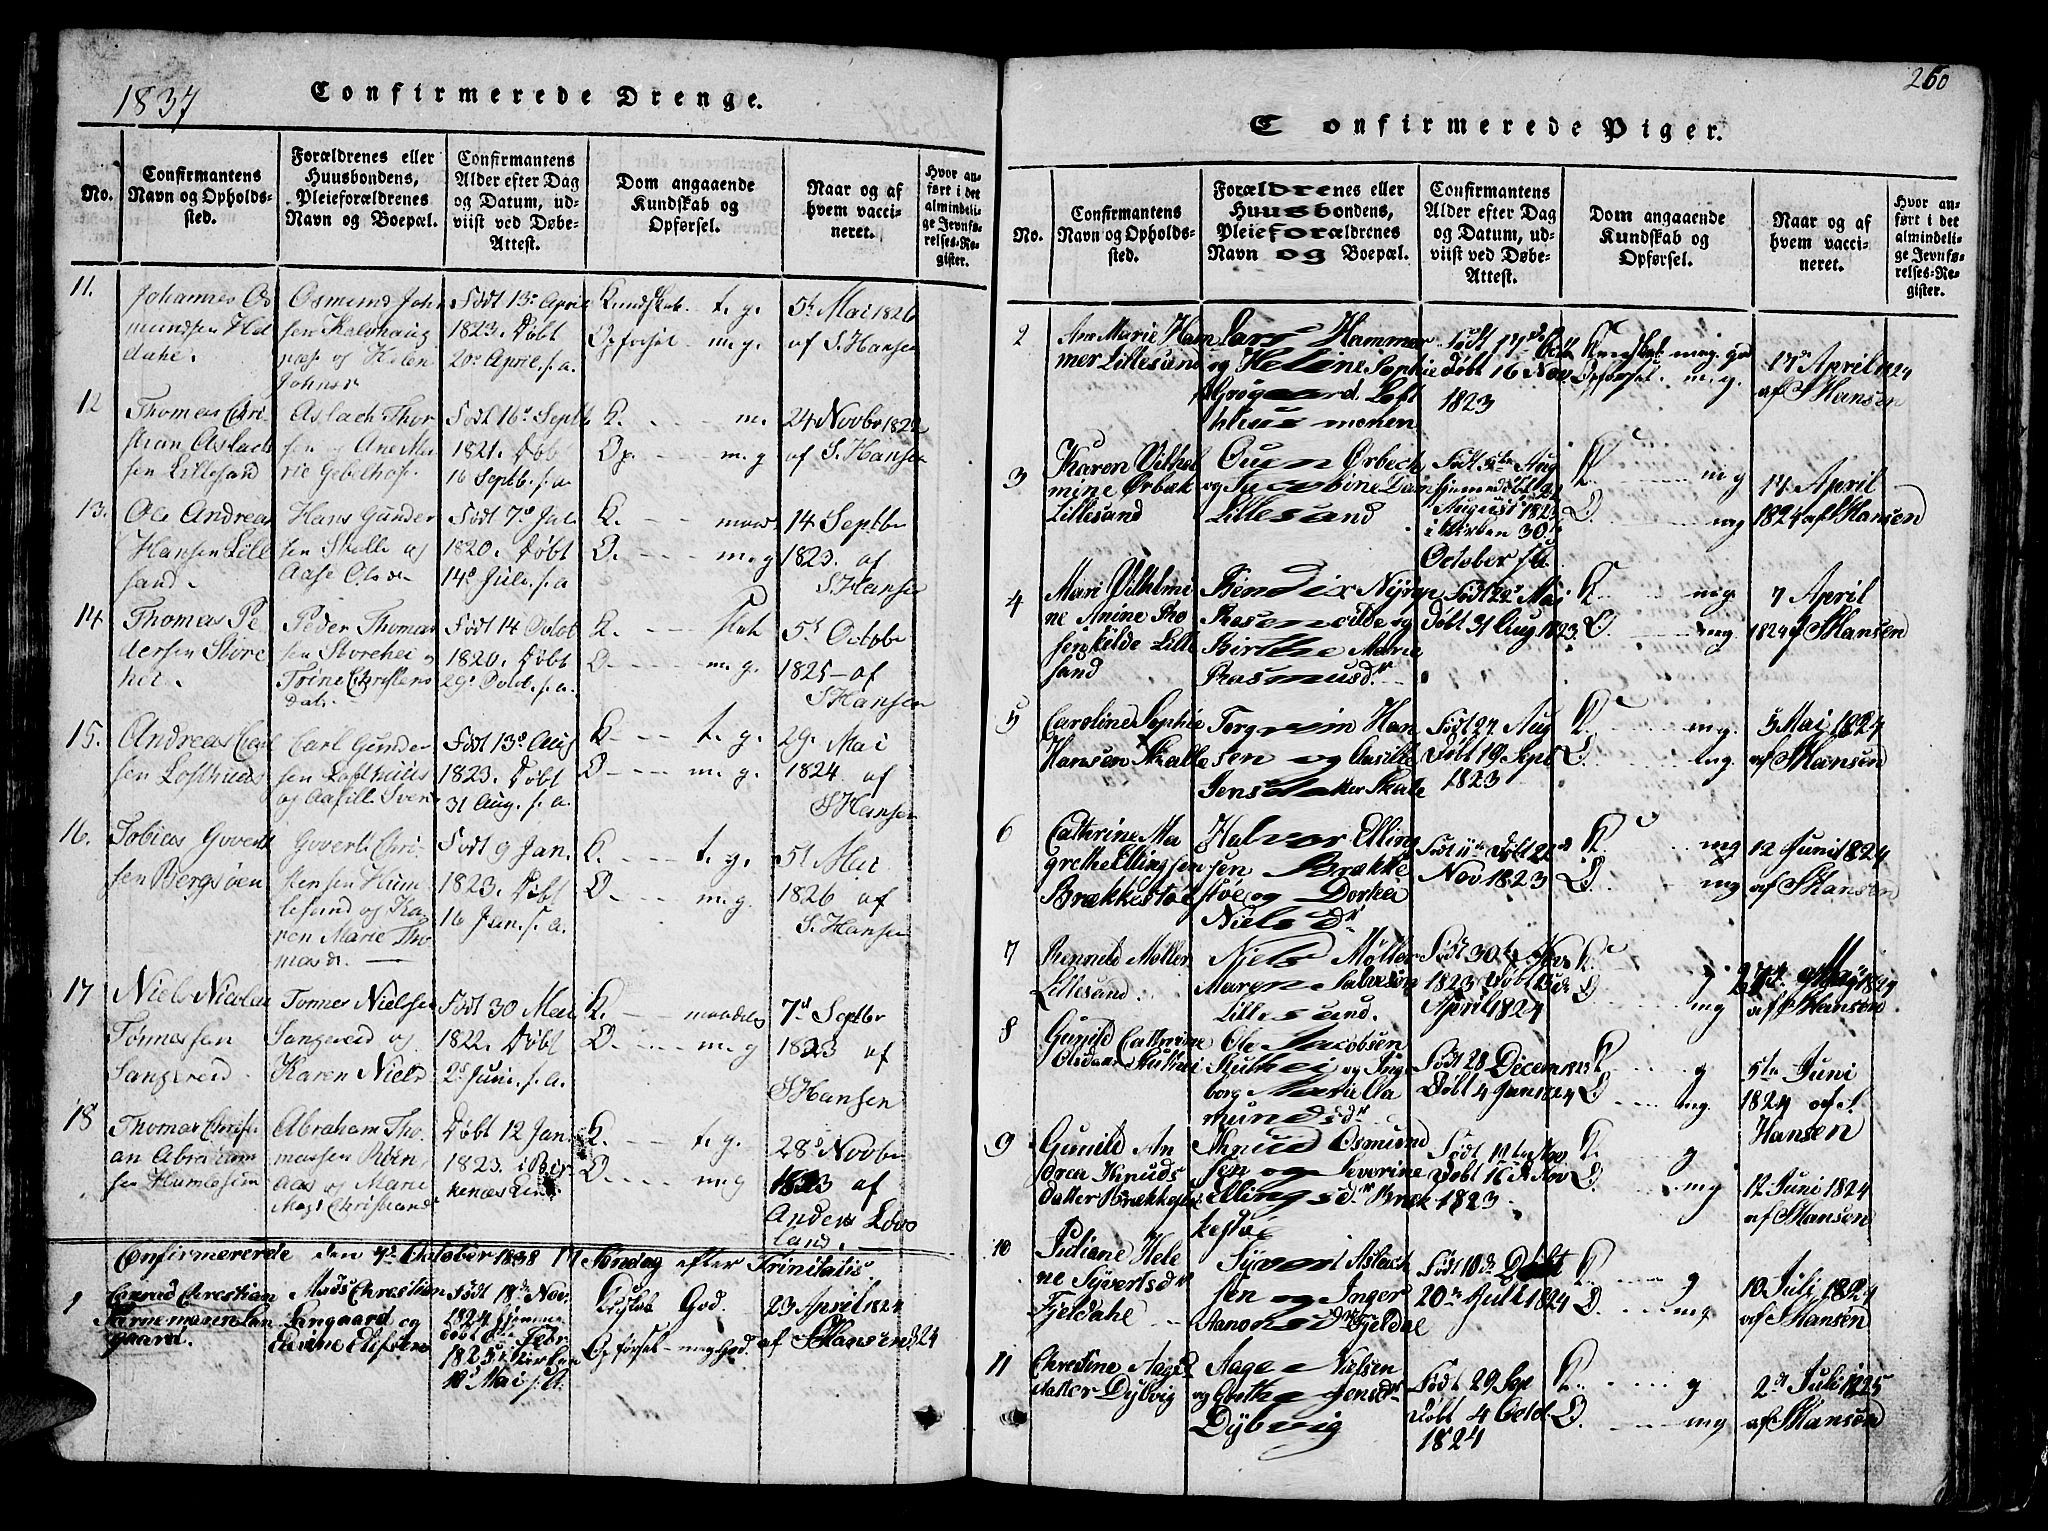 1837
Confirmerede Drenge.
No.
Confirmantens
Navn og Opholds-
sted.
Forældrenes eller
Huusbondens,
Pleieforældrenes
Navn og Boepæl.
Confirmantens
Alder efter Dag
og Datum, ud-
viist ved Døbe-
Attest.
Dom angaaende
Kundskab og
Opførsel.
Naar og af
hvem vacci-
neret.
Hvor an-
ført i det
almindeli-
ge Jevnfø-
relses-Re-
gister.
11.
Johannes Os
mundsen
Osmund John
sen
og Helen
Født 13de April
1823. Døbt
20de April. s. a.
Kundskab. t. g.
Opførsel m. g.
5te Mai 1826
af S. Hansen
12
Thomas Chri
stian Aslach
sen Lillesand
Aslach Thor
sen og Ane Ma
rie
Født 16de Septb
1821. Døbt
16 Septb. s. a.
K. m.
Op. m. g
24 Novbr 1822
af S. Hansen
13.
Ole Andreas
Hansen Lille
sand.
Hans Gunder
sen Skalle og
Aase Olsdr
Født 7de Jul
1820. Døbt
14de Juli. s. a
K. maad.
O. m. g
14 Septbr
1823. af
S Hansen
14
Thomas Pe
dersen Store
hei.
Peder Thomas
sen Storehei og
Trine Christens
datr.
Født 14 Octob
1820. Døbt
29de Octob. s. a.
K.
O. m. g.
5te Octobr
1825 - af
S Hansen
15.
Andreas Carl
sen Lofthuus
Carl Gunder
sen Lofthuus
og Aasill Sven
Født 13de Aug
1823. Døbt
31 Aug. s. a.
K. t. g.
O. m. g.
29. Mai
1824. af
S Hansen
16.
Tobias Govert
sen Bergsøen
Govert Chri
stensen Hum-
lesund og Ka-
ren Marie Tho
masdr.
Født 9 Jan.
1823. Døbt
16 Jan. s. a.
K. t. g.
O. m. g.
5te Mai
1826 af
S. Hansen
17
Niels Nicolai
Tønnessen
Sangereid
Tønnes Nielsen
Sangereid og
Karen Nielsd
Født 30 Mai
1822. Døbt
2de Juni. s. a.
K. maadel
O. m. g
7de Septbr
1823 af
S Hansen
18
Thomas Christi
an Abraham
sen Humlesund
Abraham Tho
massen
og Marie
Christiansd
Døbt 12 Jan
1823. i Bir
kenæs
K. t. g.
O. m. g
28de Novbr
1823 af
Anders Løv
land.
Confirmererede den 7de October 1838 17 Søndag efter Trinitatis
1
Conrad Christian
Lan
gaard.
Mads Christian
Langaard og
Født 18de Nov.
1824 Hjemme
døbt 6te Febr
1825 i Kirken
10de Mai s. A.
Kdskab God.
Opførsel - meg God.
23 April 1824
af S Hansen
260
Confirmerede Piger.
No.
Confirmantens
Navn og Opholds-
sted.
Forældrenes eller
Huusbondens,
Pleieforældrenes
Navn og Boepæl.
Confirmantens
Alder efter Dag
og Datum, ud-
viist ved Døbe-
Attest.
Dom angaaende
Kundskab og
Opførsel.
Naar og af
hvem vacci-
neret.
Hvor an-
ført i det
almindeli-
ge Jevnfø-
relses-Re-
gister.
2
Ane Marie Ham
mer Lillesand
Lars Hammer
og Heline Sophie
Grøgaard
Født 17de Octb
Døbt 16 Nov
1823
Kundskab meg. god
Opførsel. m. g.
17de April 1824
af S Hansen
3
Karen Vilhel
mine Ørbæk
Lillesand
Ouen Ørbech
og Jacobine Dan
Lillesand
Født 5te Aug
hjemmedøbt 22
August 1823
i Kirken 30te
October s A.
K. m g
O. m g
17 April
1824 af S Hansen
4
Mari Vilhelmi
ne Anine Ro
senkilde Lille
sand
Bendix Nyrup
Rosenkilde og
Birthe Marie
Rasmusdr.
Født 22de Mai
Døbt 31 Aug 1823.
K. m g
O. m g.
7 April
1824 af S Hansen
5
Caroline Sophie
Hansen Skalle
Torgrim Han
sen og Aasille
Jensdatter Skalle
Født 24 Aug
Døbt 19 Sept
1823
K. m g.
O. m g.
5 Mai 1824
af S Hansen
6
Cathrine Ma
grethe Ellingsen
Brækkestøe
Halvor Elling
sen Brække
støe og Dorthea
Niels Dr.
Født 11te Døbt 22de
Nov 1823
K. m g
O. m g
12 Juni 1824
af S Hansen
7
Renneld Møller
Lillesand.
Niels Møller
Maren Salvesen
Lillesand.
Født 30te Nov
1823 Døbt 13de
April 1824
K. g
O. m g
27de Mai 1824
af S Hansen
8
Gunild Cathrine
Olsdatter
Ole Jacobsen
og Inge
borg Marie Aa
mundsdr
Født 28 Decem 1823
Døbt 4 Jan 1824
K. g
O. m g.
5te Juni
1824 af S.
Hansen
9
Gunild An
drea Knuds
datter Brækkestøe
Knud Osmund
sen og Severine
Ellingsdr Bræk
kestøe
Født 11te Nov
Døbt 16de Nov
1823
K. g
O. m g.
12 Juni 1824
af S Hansen
10
Juliane Hele
ne Syvertsdr
Fjeldahl
Syvert Aslach
sen og Inger
Fjeldal
Født 10de Døbt
20de Juli 1824
K. g
O. m g.
10 Juli 1824
af S Hansen
11
Christine Aages
datter Dybvig
Aage Nielsen
og Jensdr
Dybvig
Født 29 Sep
Døbt 4 Octb.
1824
K. g
O. m g
2de Juli 1825
af S Hansen